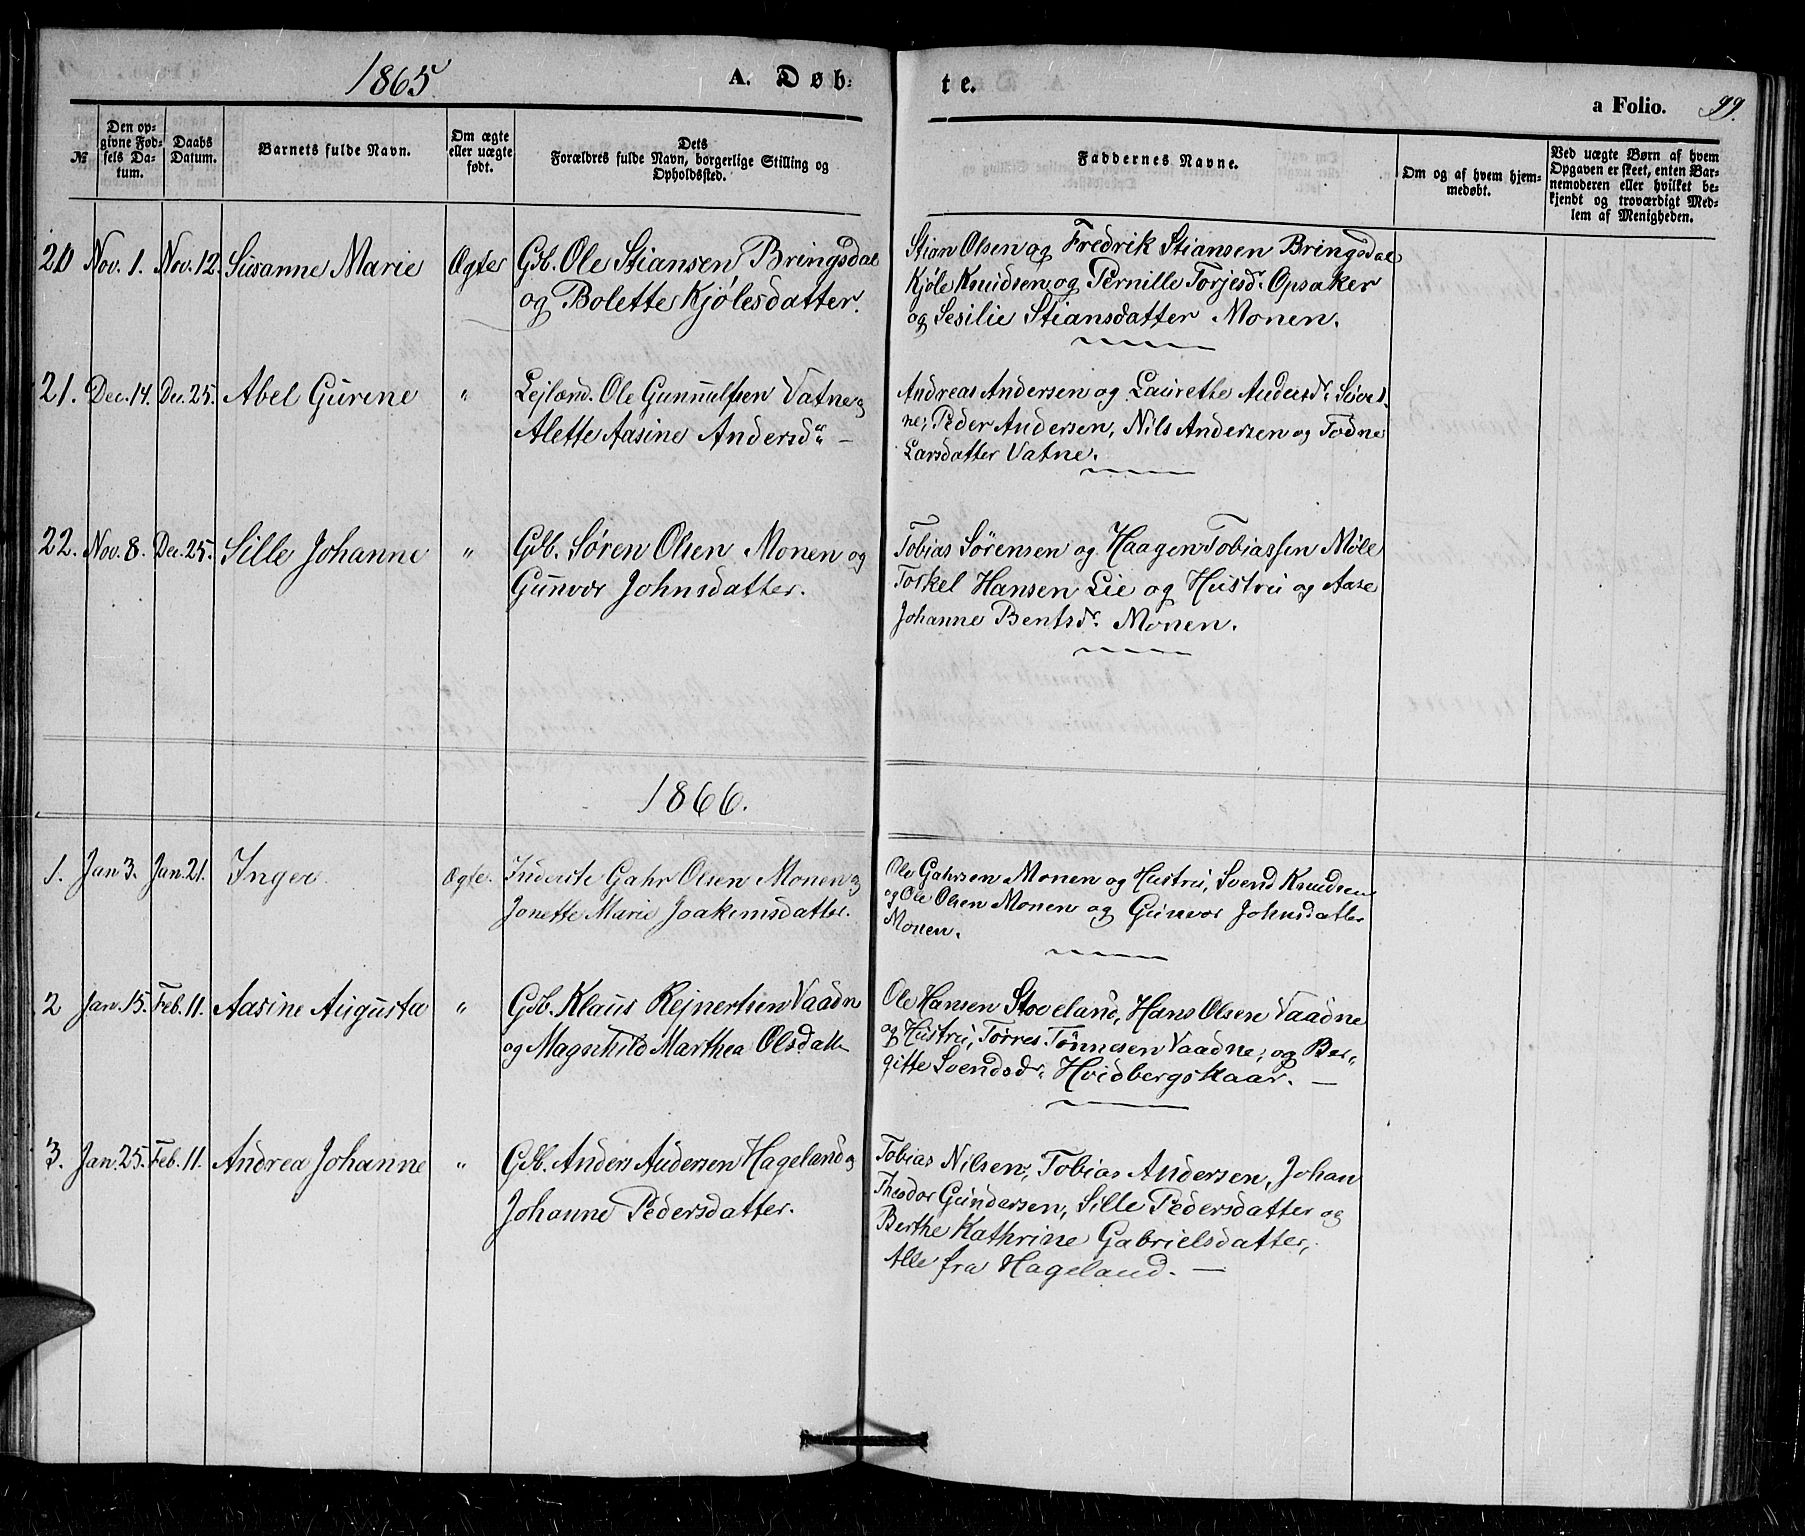 1865
A. Døb=
te.
a Folio. 99.
№
Den op-
givne Fød-
sels Da-
tum.
Daabs
Datum.
Barnets fulde Navn.
Om ægte
eller uægte
født.
Dets
Forældres fulde Navn, borgerlige Stilling og
Opholdssted.
Faddernes Navne.
Om og af hvem hjem-
medøbt.
Ved uægte Børn af hvem
Opgaven er skeet, enten Bar-
nemoderen eller hvilket be-
kjendt og troværdigt Med-
lem af Menigheden.
20 Nov. 1. Nov. 12. Susanne Marie Ægte Gdb. Ole Stiansen Bringsdal
og Bolette Kjølesdatter.
Stian Olsen og Fredrik Stiansen Bringsdal
Kjøle Knudsen og Pernille Torjesdr. Opsaker
og Sesilie Stiansdatter Monen.
21. Dec. 14. Dec. 25. Abel Gurine " Lejlænd. Ole Gunnulfsen Vatne og
Alette Aasine Andersdtr —
Andreas Andersen og Laurethe Andersdr.
ne, Peder Andersen, Nils Andersen og Todne
Larsdatter Vatne.
22. Nov. 8. Dec. 25. Sille Johanne " Gdb. Søren Olsen Monen og
Gunvor Johnsdatter.
Tobias Sørensen og Haagen Tobiassen Møle
Torkel Hansen Lie og Hustru og Aase
Johanne Bentsdr. Monen.
1866.
1. Jan 3. Jan. 21. Inger Ægte. Inderste Gahr Olsen Monen og
Jonette Marie Joakimsdatter.
Ole Gahrsen Monen og Hustru, Svend Knudsen
og Ole Olsen Monen og Gunvor Johnsdatter
Monen.
2 Jan. 15. Feb. 11. Aasine Augusta " Gdb. Klaus Rejnertsen Vaadn
og Magnhild Marthea Olsdatt
Ole Hansen Stoveland, Hans Olsen Vaadne
og Hustru, Tørres Tønnesen Vaadne, og Ber-
gitte Svendsdr. Hvidbergskaar. —
3. Jan. 25. Feb. 11. Andrea Johanne " Gdb. Anders Andersen Hageland og
Johanne Pedersdatter.
Tobias Nilsen, Tobias Andersen, Johan
Theodor Gundersen, Sille Pedersdatter og
Berthe Kathrine Gabrielsdatter,
Alle fra Hageland. —